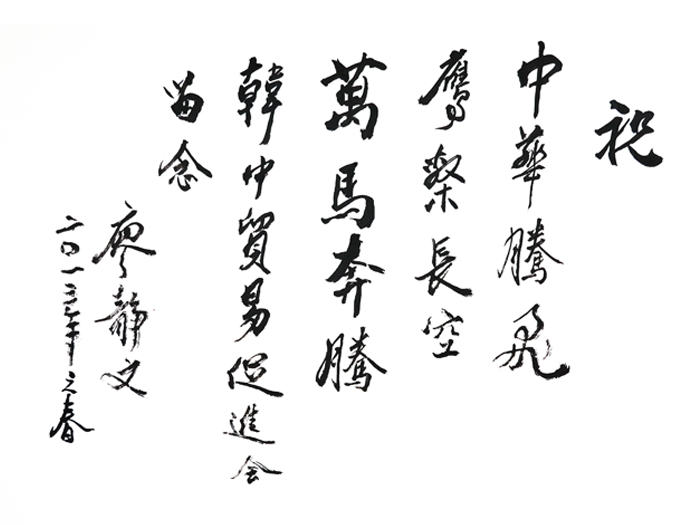 祝
中華騰飛
鷹擊長空
萬馬奔騰
韓中貿易促進会
留念
廖静文
二〇一三年之春